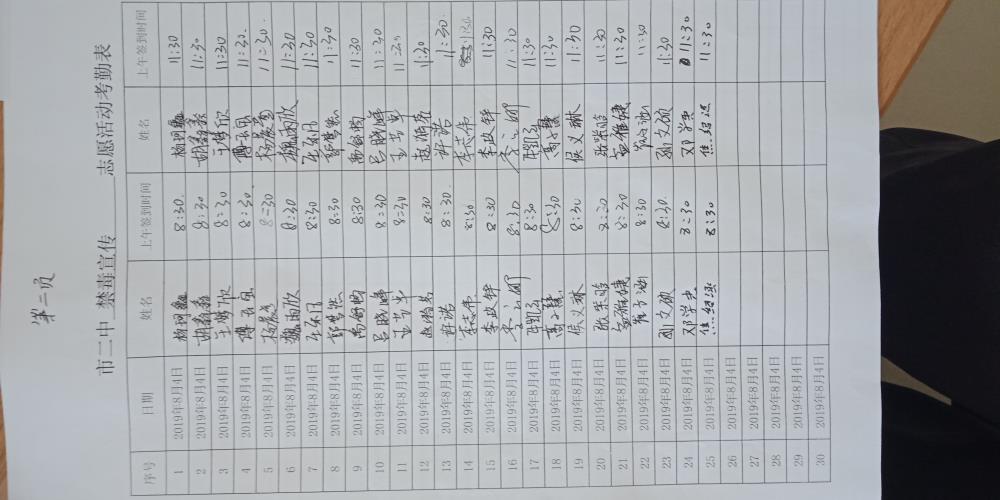 第二页
市二中 禁毒宣传 志愿活动考勤表
序号 日期 姓名 上午签到时间 姓名 上午签到时间
1 2019年8月4日 8:30 11:30
2 2019年8月4日 胡鑫鑫 8:30 胡鑫鑫 11:30
3 2019年8月4日 王 欣 8:30 王 欣 11:30
4 2019年8月4日 傅 8:30 傅 11:30
5 2019年8月4日 杨 8:30 杨 11:30
6 2019年8月4日 魏雨欣 8:30 魏雨欣 11:30
7 2019年8月4日 王 8:30 王 11:30
8 2019年8月4日 8:30 11:30
9 2019年8月4日 8:30 11:30
10 2019年8月4日 吕晓峰 8:30 吕晓峰 11:30
11 2019年8月4日 王 8:30 王 11:30
12 2019年8月4日 赵 8:30 赵 11:30
13 2019年8月4日 许诺 8:30 许诺 11:30
14 2019年8月4日 李志伟 8:30 李志伟 11:30
15 2019年8月4日 李政锌 8:30 李政锌 11:30
16 2019年8月4日 李 8:30 李 11:30
17 2019年8月4日 8:30 11:30
18 2019年8月4日 高子慧 8:30 高子慧 11:30
19 2019年8月4日 侯义琳 8:30 侯义琳 11:30
20 2019年8月4日 张荣晗 8:30 张荣晗 11:30
21 2019年8月4日 8:30 11:30
22 2019年8月4日 8:30 11:30
23 2019年8月4日 孙文硕 8:30 孙文硕 11:30
24 2019年8月4日 邓学忠 8:30 邓学忠 11:30
25 2019年8月4日 焦绍 8:30 焦绍 11:30
26 2019年8月4日
27 2019年8月4日
28 2019年8月4日
29 2019年8月4日
30 2019年8月4日